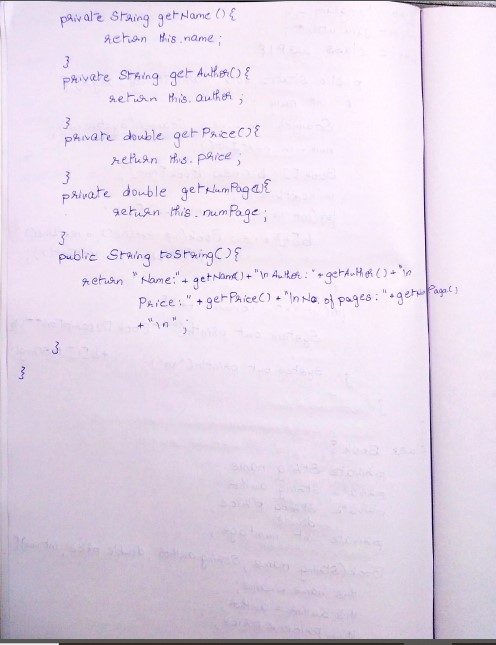 private String getName(){
return this.name;
}
private String getAuthor(){
return this.author;
}
private double getPrice(){
return this.price;
}
private double getNumPage){
return this.numPage;
}
public String toString(){
return "Name:"+ getName()+"\n Author:"+getAuthor()+"\n
Price:"+getPrice()+"\nNo. of pages:"+getNumPage()
+"\n";
}
}